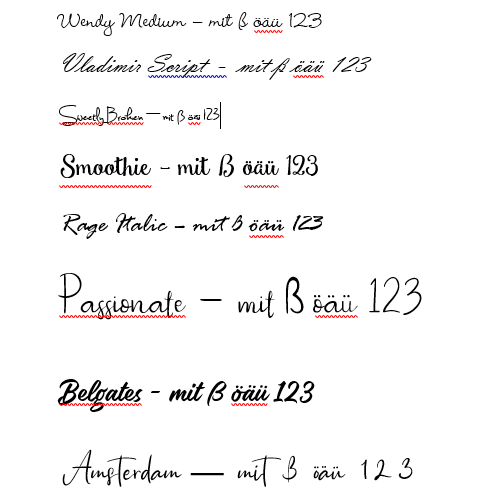 Wendy Medium – mit ß öäü 123
Vladimir Script - mit ß öäü 123
SweetlyBroken – mit ß öäü 123
Smoothie - mit ß öäü 123
Rage Italic - mit ß öäü 123
Passionate – mit ß öäü 123
Belgates - mit ß öäü 123
Amsterdam — mit ß öäü 123